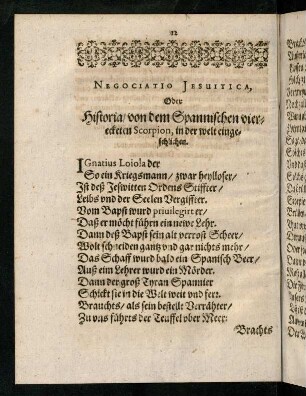 22
NEGOCIATIO JESUITICA,
Oder
Historia/ von dem Spannischen vier-
ecketen Scorpion, in der welt einge-
schlichen.
IGnatius Loiola der
So ein Kriegsmann/ zwar heylloser/
Ist deß Jeswitten Ordens Stiffter/
Leibs vnd der Seelen Vergiffter.
Vom Bapst wurd priuilegirt er/
Daß er möcht führn ein newe Lehr.
Dann deß Bapst sein alt verrost Scheer/
Wolt schneiden gantz vnd gar nichts mehr/
Das Schaff wurd bald ein Spanisch Beer/
Auß eim Lehrer wurd ein Mörder.
Dann der groß Tyran Spannier
Schickt sie in die Welt weit vnd ferr.
Brauchts/ als sein bestellt Verrähter/
Zu vns führts der Teuffel vber Meer/
Brachts